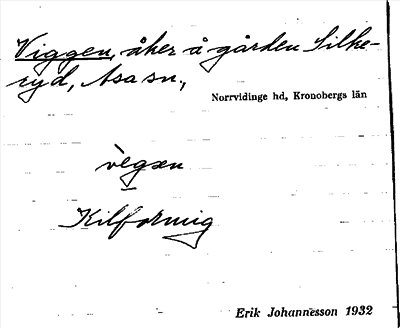 Viggen, åker å gården Silke-
ryd, Asa sn,
Norrvidinge hd, Kronobergs län
vègæn
Kilformig
Erik Johannesson 1932